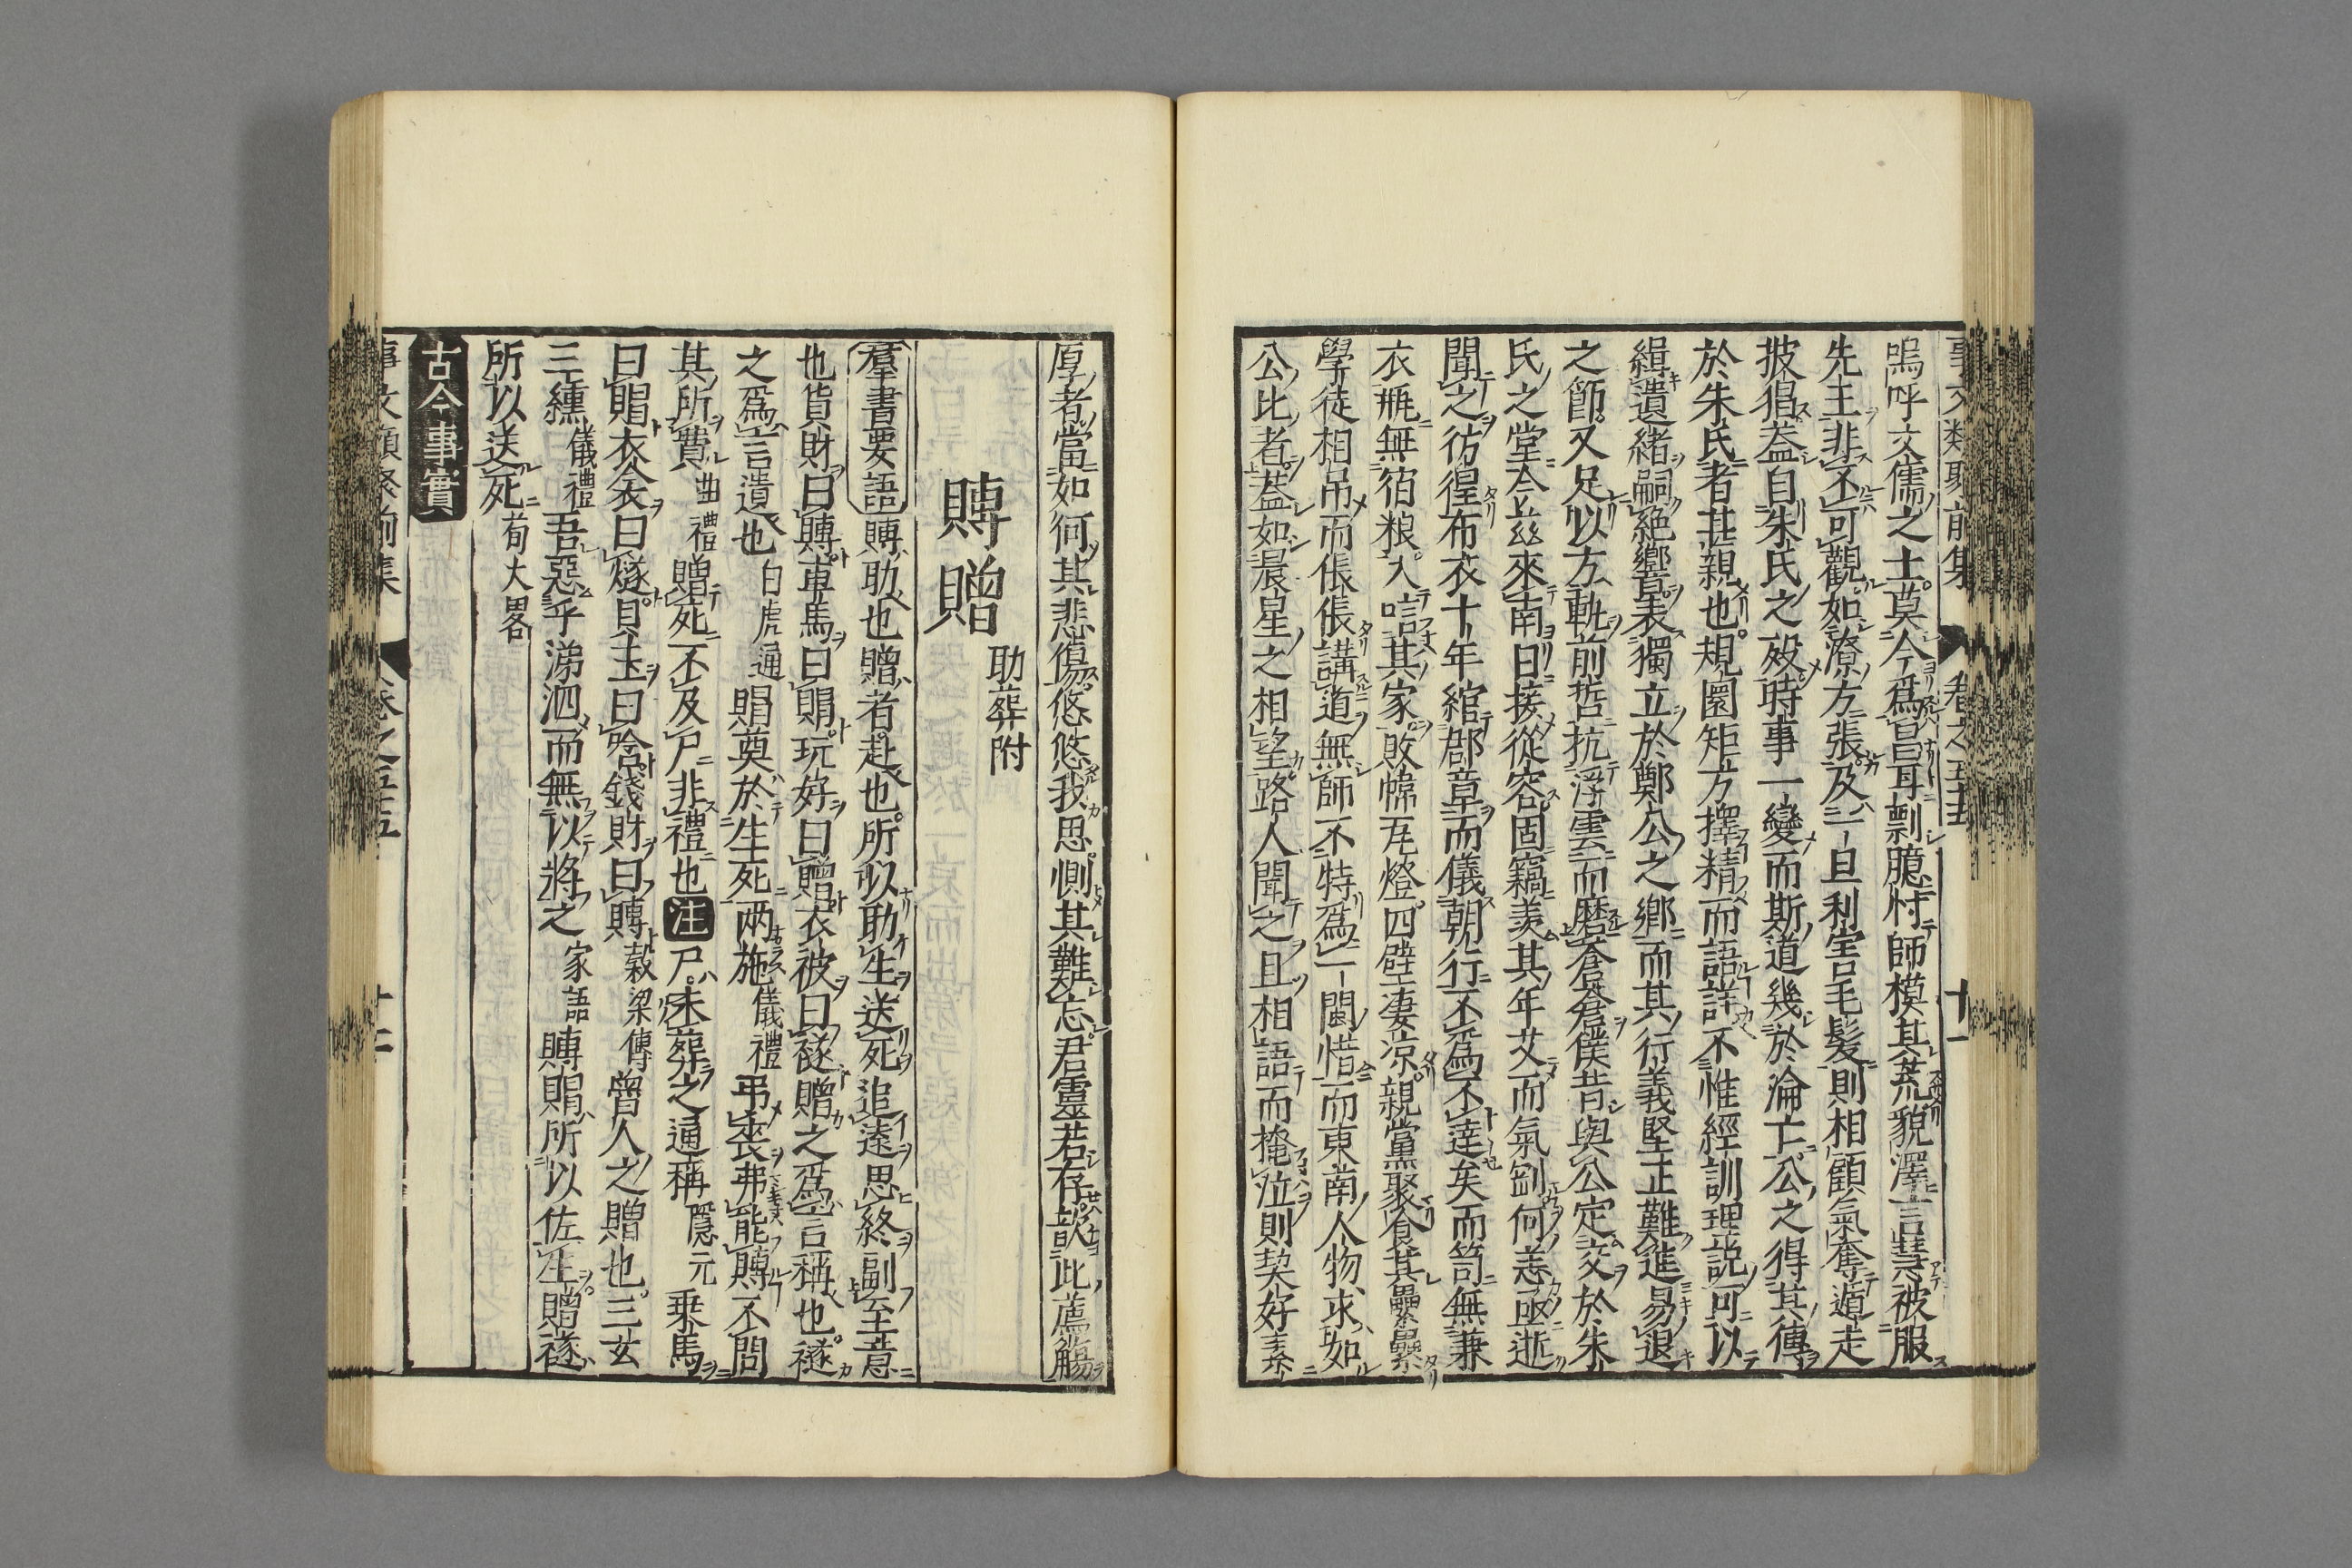 事文類聚前集 卷之五十五 十一
嗚呼文儒之士莫今爲昌耳剽臆忖師模其荒貌澤言慧被服
先王非不可觀如潦方張及一旦利害毛髪則相顧氣奪遁走
披猖葢自朱氏之殁時事一變而斯道幾於淪亡公之得其傳
於朱氏者甚親也規圜矩方擇精而語詳不惟經訓理説可以
緝遺緒嗣絶響葦表獨立於鄭公之鄕而其行義堅正難進易退
之節又足以方軌前哲抗浮雲而磨蒼蒼僕昔與公定交於朱
氏之堂今玆來南日接從容固竊羡其年艾而氣劒何恙亟逝
聞之彷徨布衣十年綰郡章而儀朝行不爲不達矣而笥無兼
衣甁無宿粮入唁其家敗幃瓦燈四壁凄凉親黨聚食其纍纍
學徒相吊而倀倀講道無師不特爲一閩惜而東南人物求如
公比者葢如晨星之相望路人聞之且相語而掩泣則契好素
厚者當如何其悲傷悠悠我思惻其難忘君靈若存歆此薦觴
賻贈 助葬附
羣書要語 賻助也贈者赴也所以助生送死追遠思終副至意
也貨財曰賻車馬曰賵玩好曰贈衣被曰襚贈之爲言稱也襚
之爲言遺也 白虎通 賵奠於生死兩施 儀禮 弔喪弗能賻不問
其所費 曲禮 贈死不及尸非禮也 注 尸未葬之通稱 隱元 乗馬
曰賵衣衾曰襚貝玉曰唅錢財曰賻 穀梁傳 曾人之贈也三玄
三纁 儀禮 吾惡乎涕泗而無以將之 家語 賻賵所以佐生贈襚
所以送死 荀大畧
古今事實
事文類聚前集 卷之五十五 十二